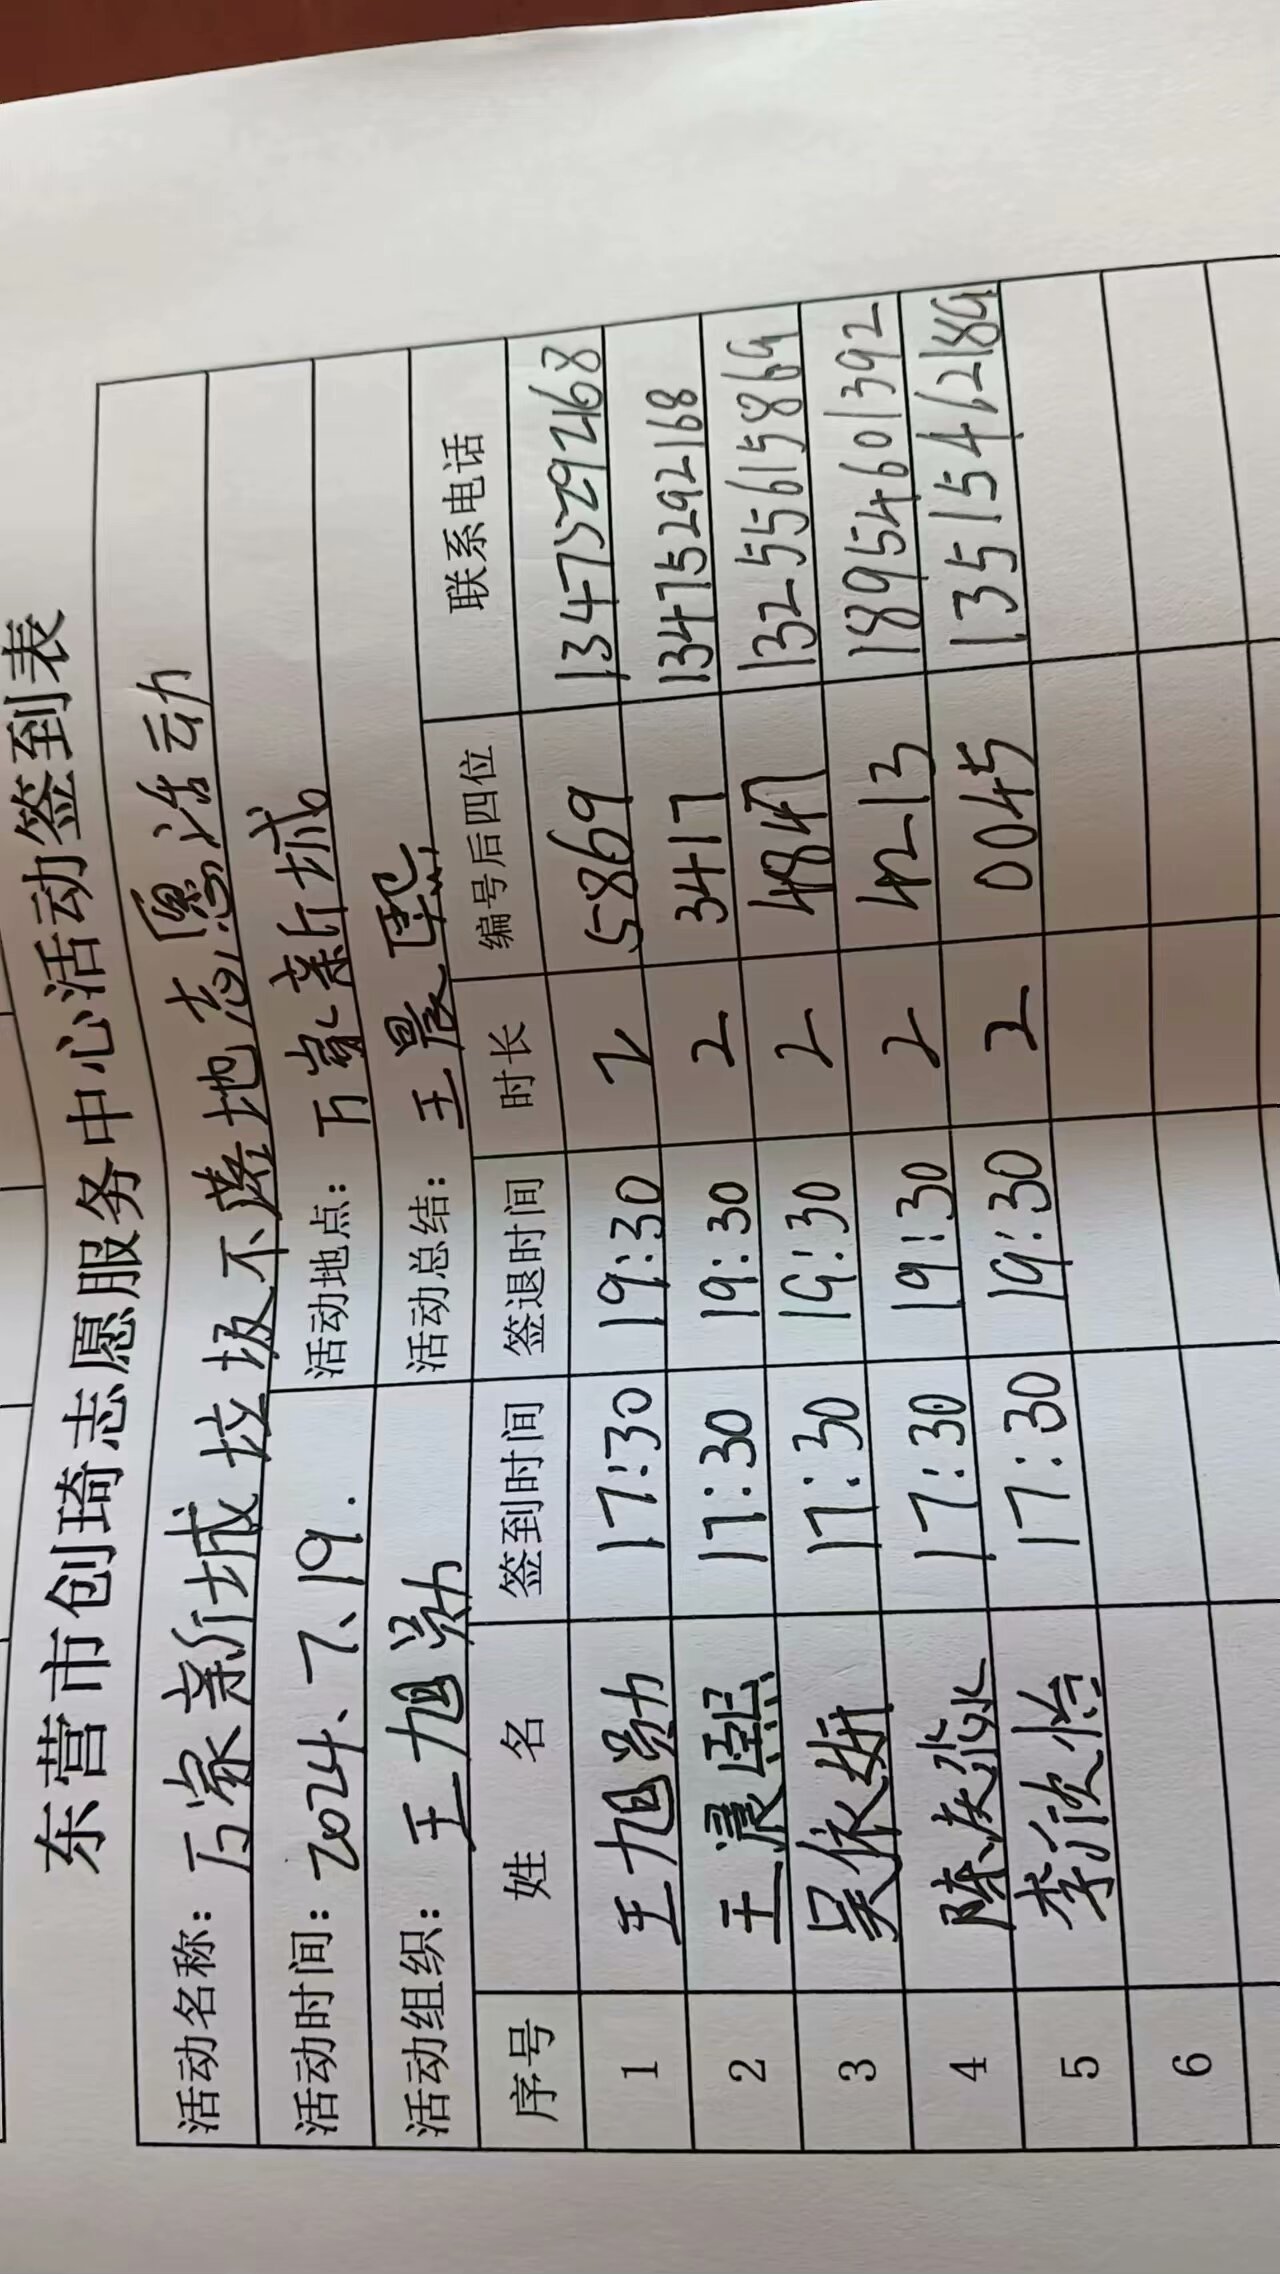 东营市创琦志愿服务中心活动签到表
活动名称：万家新城垃圾不落地志愿活动
活动时间：2024、7、19. 活动地点：万家新城
活动组织：王旭勋 活动总结：王晨熙
序号 姓 名 签到时间 签退时间 时长 编号后四位 联系电话
1 王旭勋 17:30 19:30 2 5869 13475292168
2 王晨熙 17:30 19:30 2 3417 13475292168
3 吴依妍 17:30 19:30 2 4847 13255615869
4 陈 17:30 19:30 2 4213 18954601392
5 李欣怡 17:30 19:30 2 0045 13515462189
6